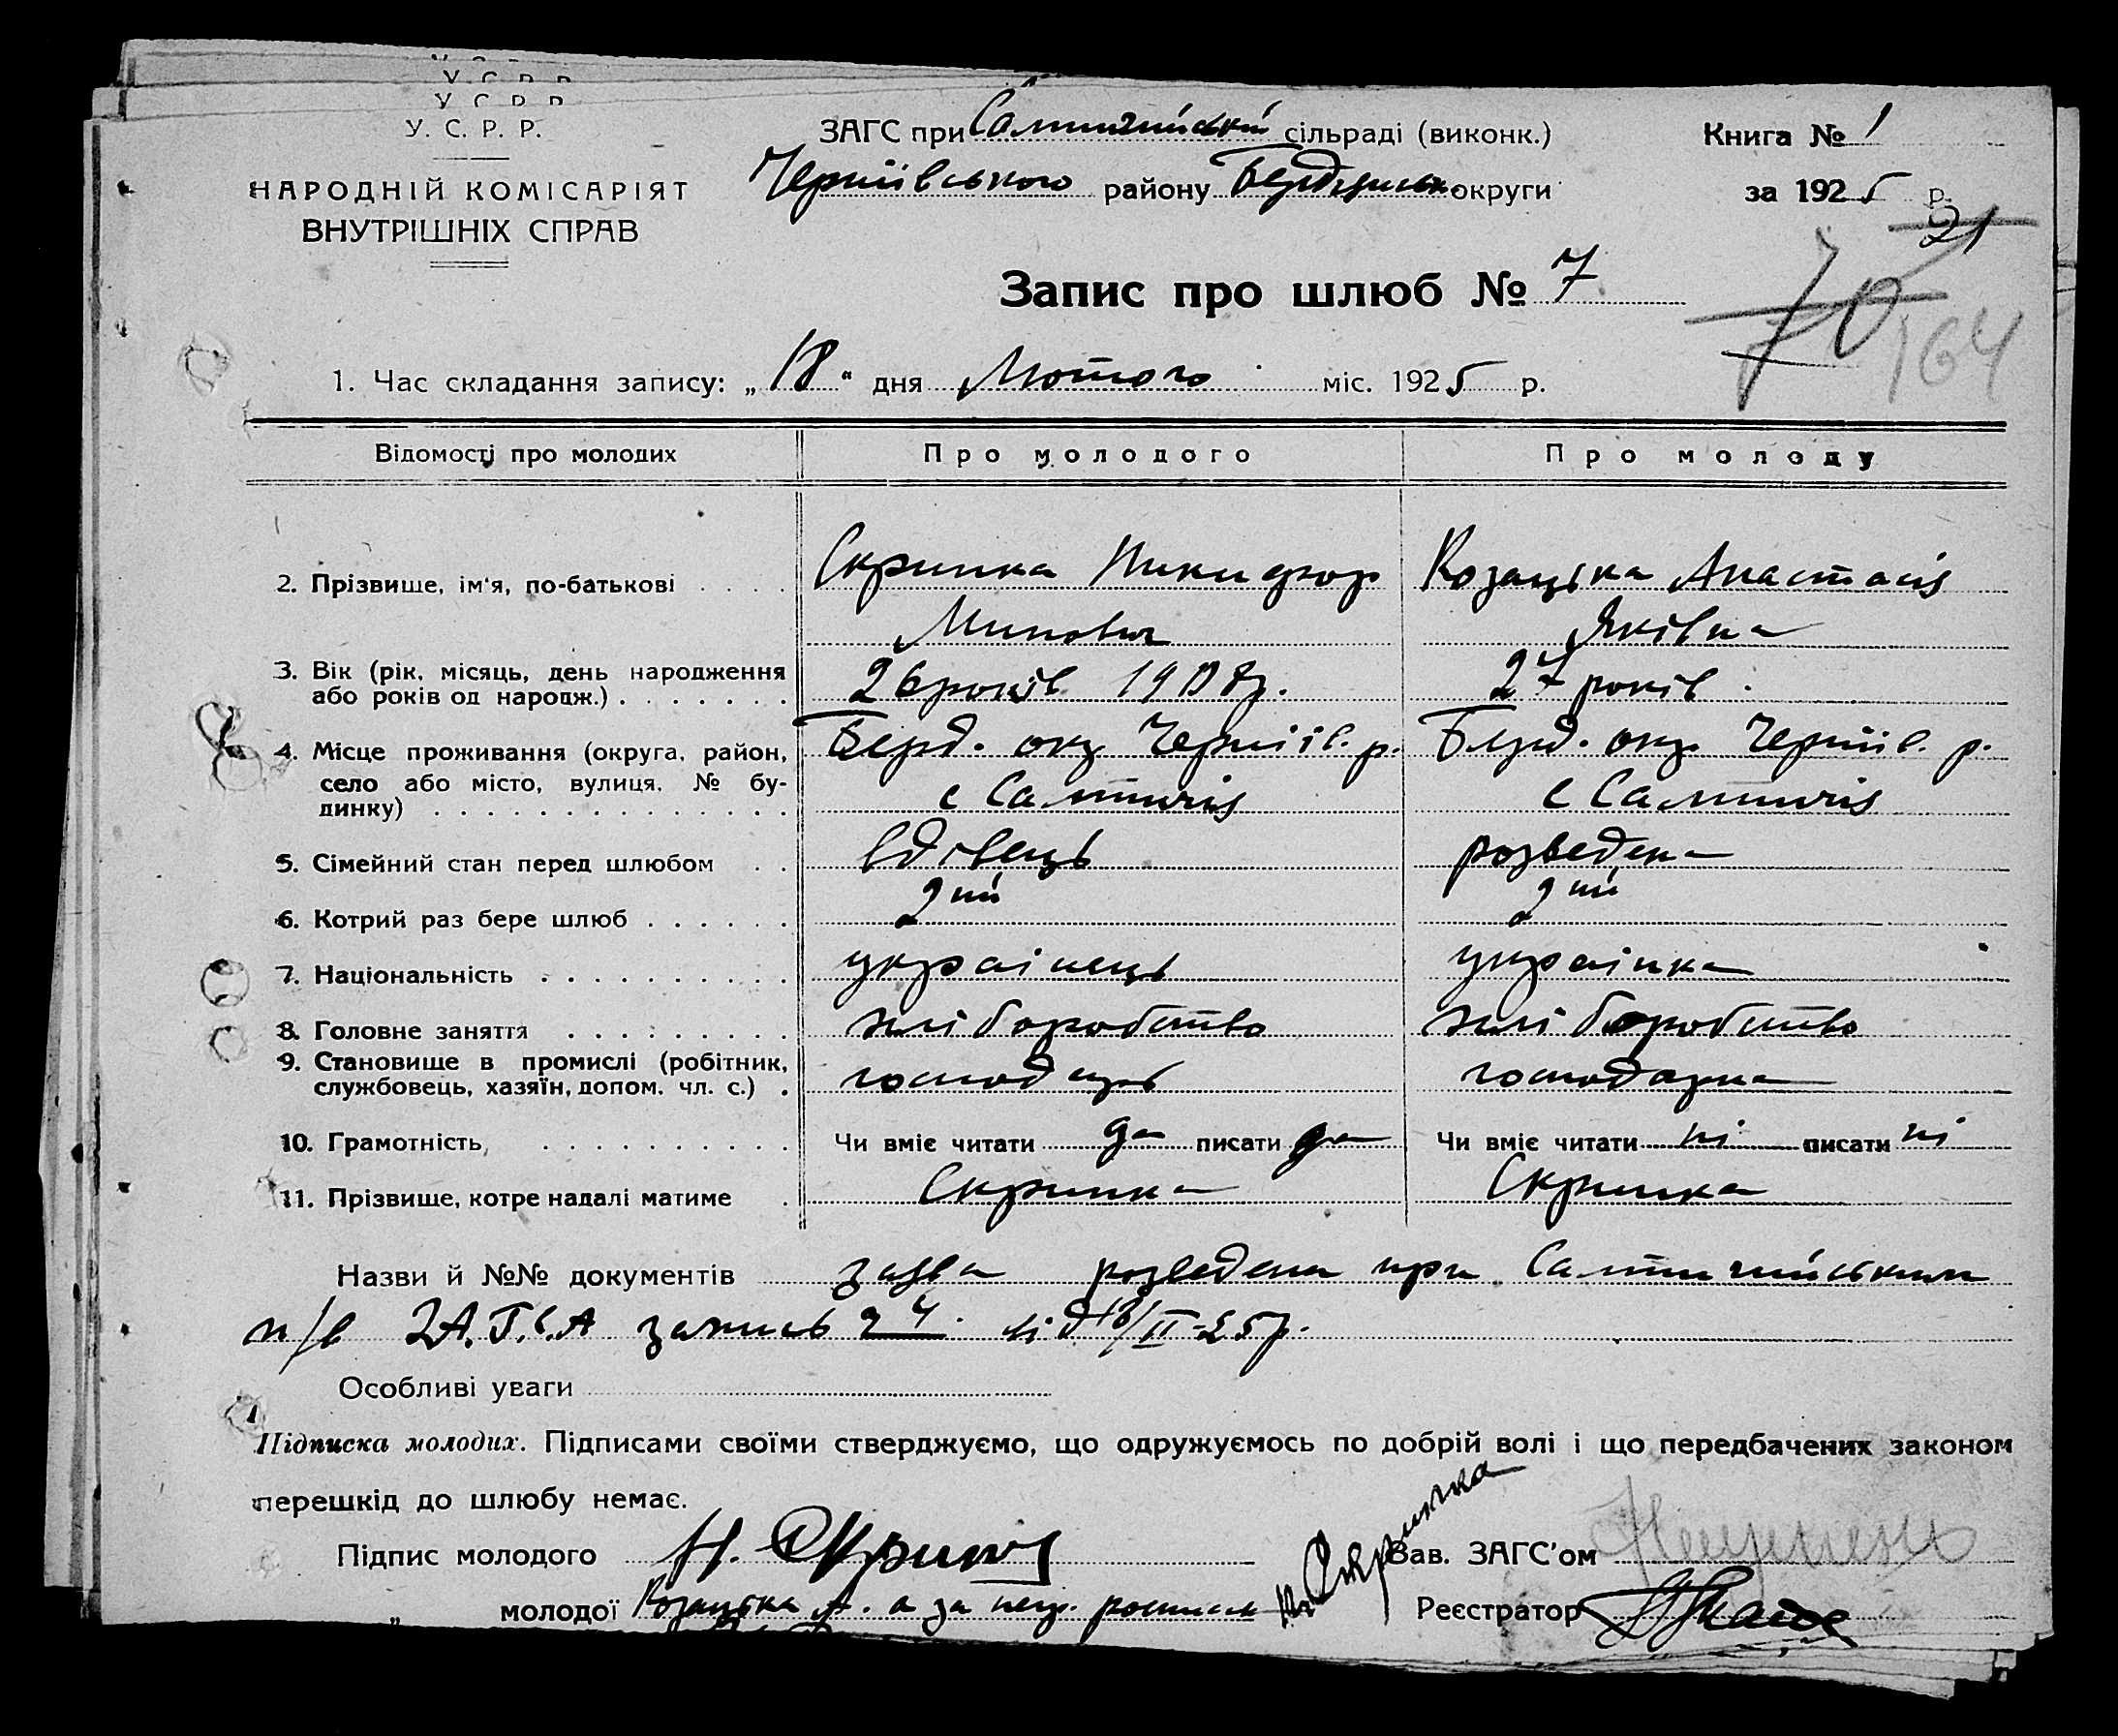 У. С. Р. Р.
НАРОДНІЙ КОМІСАРІЯТ
ВНУТРІШНІХ СПРАВ
ЗАГС при Салтичийській сільраді (виконк.)
Черніївського району Бердянськ. округи
Книга № 1
за 1925 р.
21
70
164
Запис про шлюб № 7
1. Час складання запису: „18“ дня Лютого міс. 1925 р.
Відомості про молодих Про молодого Про молоду
2. Прізвище, ім'я, по-батькові . . . . Скрипка Никифор Козацька Анастасія
Минович Яківна
3. Вік (рік, місяць, день народження 26 років 27 років.
або років од народж.) . . . . . . .
4. Місце проживання (округа, район, Берд. окр Черніїв. р. Берд. окр. Черніїв. р.
село або місто, вулиця, № бу- с Салтичія с Салтичія
динку) . . . . . . . . . . . . . .
5. Сімейний стан перед шлюбом . . вдівець розведена
6. Котрий раз бере шлюб . . . . . . 2ий 2ий
7. Національність . . . . . . . . . . українець українка
8. Головне заняття . . . . . . . . . хліборобство хліборобство
9. Становище в промислі (робітник, господарь господарка
службовець, хазяїн, допом. чл. с.) .
10. Грамотність, . . . . . . . . . . Чи вміє читати да писати да Чи вміє читати ні писати ні
11. Прізвище, котре надалі матиме . Скрипка Скрипка
Назви й №№ документів заява розведена при Салтичийським
п/в ЗА.Г.С.А запись 24. від 18/II-25р.
Особливі уваги
Підписка молодих. Підписами своїми стверджуємо, що одружуємось по добрій волі і що передбачених законом
перешкід до шлюбу немає.
Підпис молодого Н. Скрипка Зав. ЗАГС'ом
„ молодої Козацька А. а за неї расписався Н. Скрипка Реєстратор